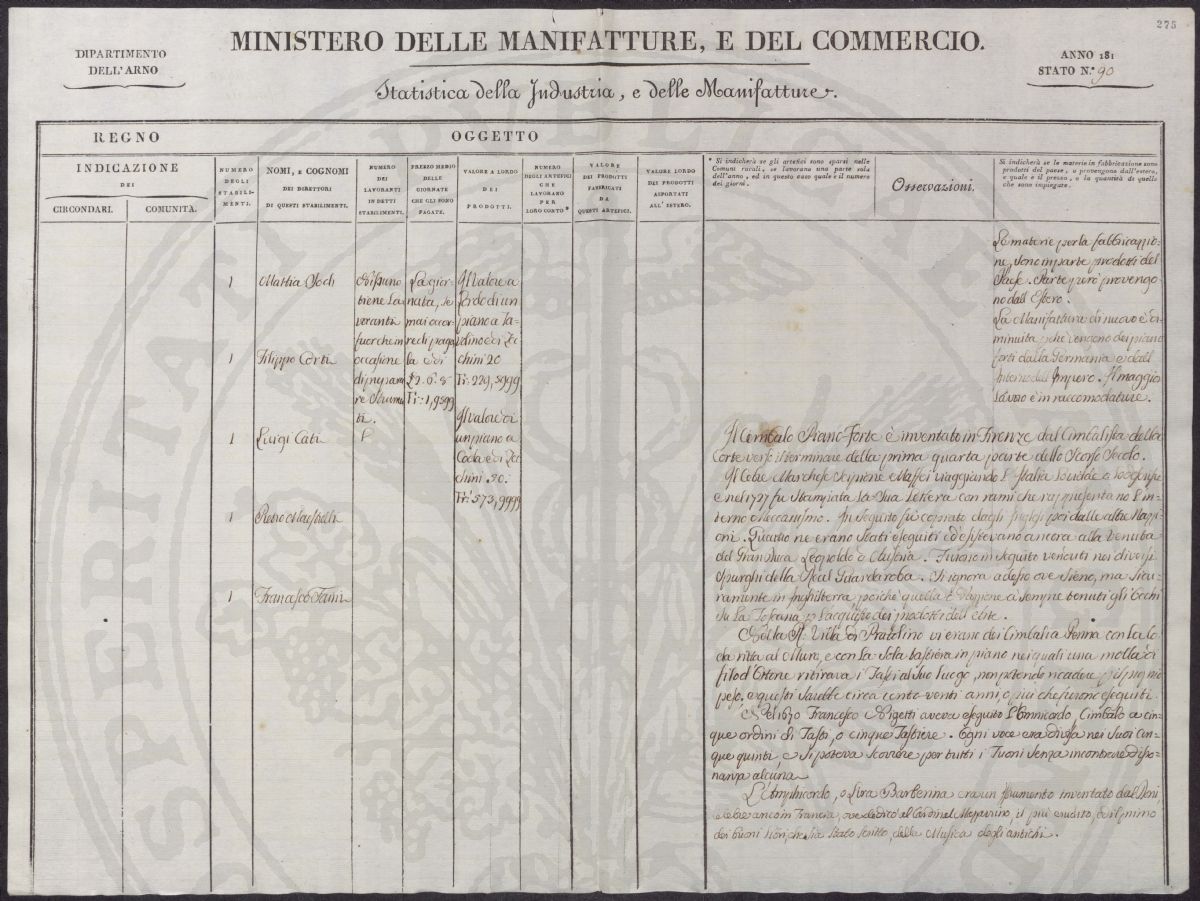 275
DIPARTIMENTO
DELL'ARNO
MINISTERO DELLE MANIFATTURE, E DEL COMMERCIO.
ANNO 181
STATO N.° 90
Statistica della Industria, e delle Manifatture.
REGNO
OGGETTO
INDICAZIONE
DEI
CIRCONDARI.
COMUNITÀ.
NUMERO
DEGLI
STABILI-
MENTI.
NOMI, E COGNOMI
DEI DIRETTORI
DI QUESTI STABILIMENTI.
NUMERO
DEI
LAVORANTI
IN DETTI
STABILIMENTI.
PREZZO MEDIO
DELLE
GIORNATE
CHE GLI SONO
PAGATE.
VALORE A LORDO
DEI
PRODOTTI.
NUMERO
DEGLI ARTEFICI
CHE
LAVORANO
PER
LORO CONTO*
VALORE
DEI PRODOTTI
FABBRICATI
DA
QUESTI ARTEFICI.
VALORE LORDO
DEI PRODOTTI
ASPORTATI
ALL'ESTERO.
* Si indicherà se gli artefici sono sparsi nelle
Comuni rurali, se lavorano una parte sola
dell'anno, ed in questo caso quale è il numero
dei giorni.
Osservazioni.
Si indicherà se le materie in fabbricazione sono
prodotti del paese, o provengono dall'estero,
e quale è il prezzo, e la quantità di quelle
che sono impiegate.
1
Mattia
1
Filippo Corti
1
Luigi Cati
1
Pietro
1
Francesco
Nissuno
tiene La
voranti
fuorche in
occasione
di preparar
re Strumen
ti.
La gior-
nata, se
mai occor-
re di pagar
la è di
£2. 6. 8
Fr: 1,9599
Il Valore a
Lordo di un
piano a Ta-
volino è di Ze
chini 20
Fr: 229,5999
Il Valore di
un piano a
Coda è di Ze
chini 50.
Fr: 573,9999
Le materie per la fabbricazzio-
ne, sono in parte prodotti del
Paese. Parte però provengo-
no dall'Estero.
La Manifattura di nuovo è di-
minuita, che vengono dei piano
forti dalla Germania e dall'
Interno dell'Impero. Il maggior
Lavoro è in raccomodature.
Il Cimbalo Piano-Forte è inventato in Firenze dal Cimbalista della
Corte verso il terminare della prima quarta parte dello Scorso Secolo.
Il Celbre Marchese Scipione Maffei viaggiando l'Italia
e nel 1727 fu Stampata la Sua Lettera con rami che rappresentano l'in-
terno Meccanismo. In seguito fu copiato dagli Inglesi poi dalle altre Nazzi-
oni. Quattro ne erano Stati eseguiti ed esistevano ancora alla venuta
del Gran Duca Leopoldo d'Austria. Furono in Seguito venduti nei diversi
Spurghi della Real Guardaroba. Si ignora adesso ove Sieno, ma Sicu-
ramente in Inghilterra, poichè quella Nazzione à sempre tenuti gli Occhi
Su La Toscana, p. l'acquisto dei prodotti dell'Arte.
Nella R. Villa di Pratolino vi erano dei Cimbali a Penna con La Co
da ritta al Muro, e con La Sola tastiera in piano nei quali una molla di
filo d'Ottone ritirava i Tasti al Suo Luogo, non potendo ricadere p. il proprio
peso. e questi Sarebbe circa cento venti anni, o più che furono eseguiti.
Nel 1670 Francesco Nigetti aveva eseguito L'Onnicordo, Cimbalo a cin-
que ordini di Tasti, o cinque Tastiere. Ogni voce era divisa nei Suoi cin-
que quinti, e Si poteva Scorrere per tutti i Tuoni Senza incontrare disso-
nanza alcuna.
L'Amphicordo, o Lira Barberina era un istrumento inventato dal Doni,
celebre anco in Francia, ove dedicò al Cardinal Mazzarino, il più erudito, ed il primo
dei buoni libri, che Sia Stato Scritto, della Musica degli antichi.